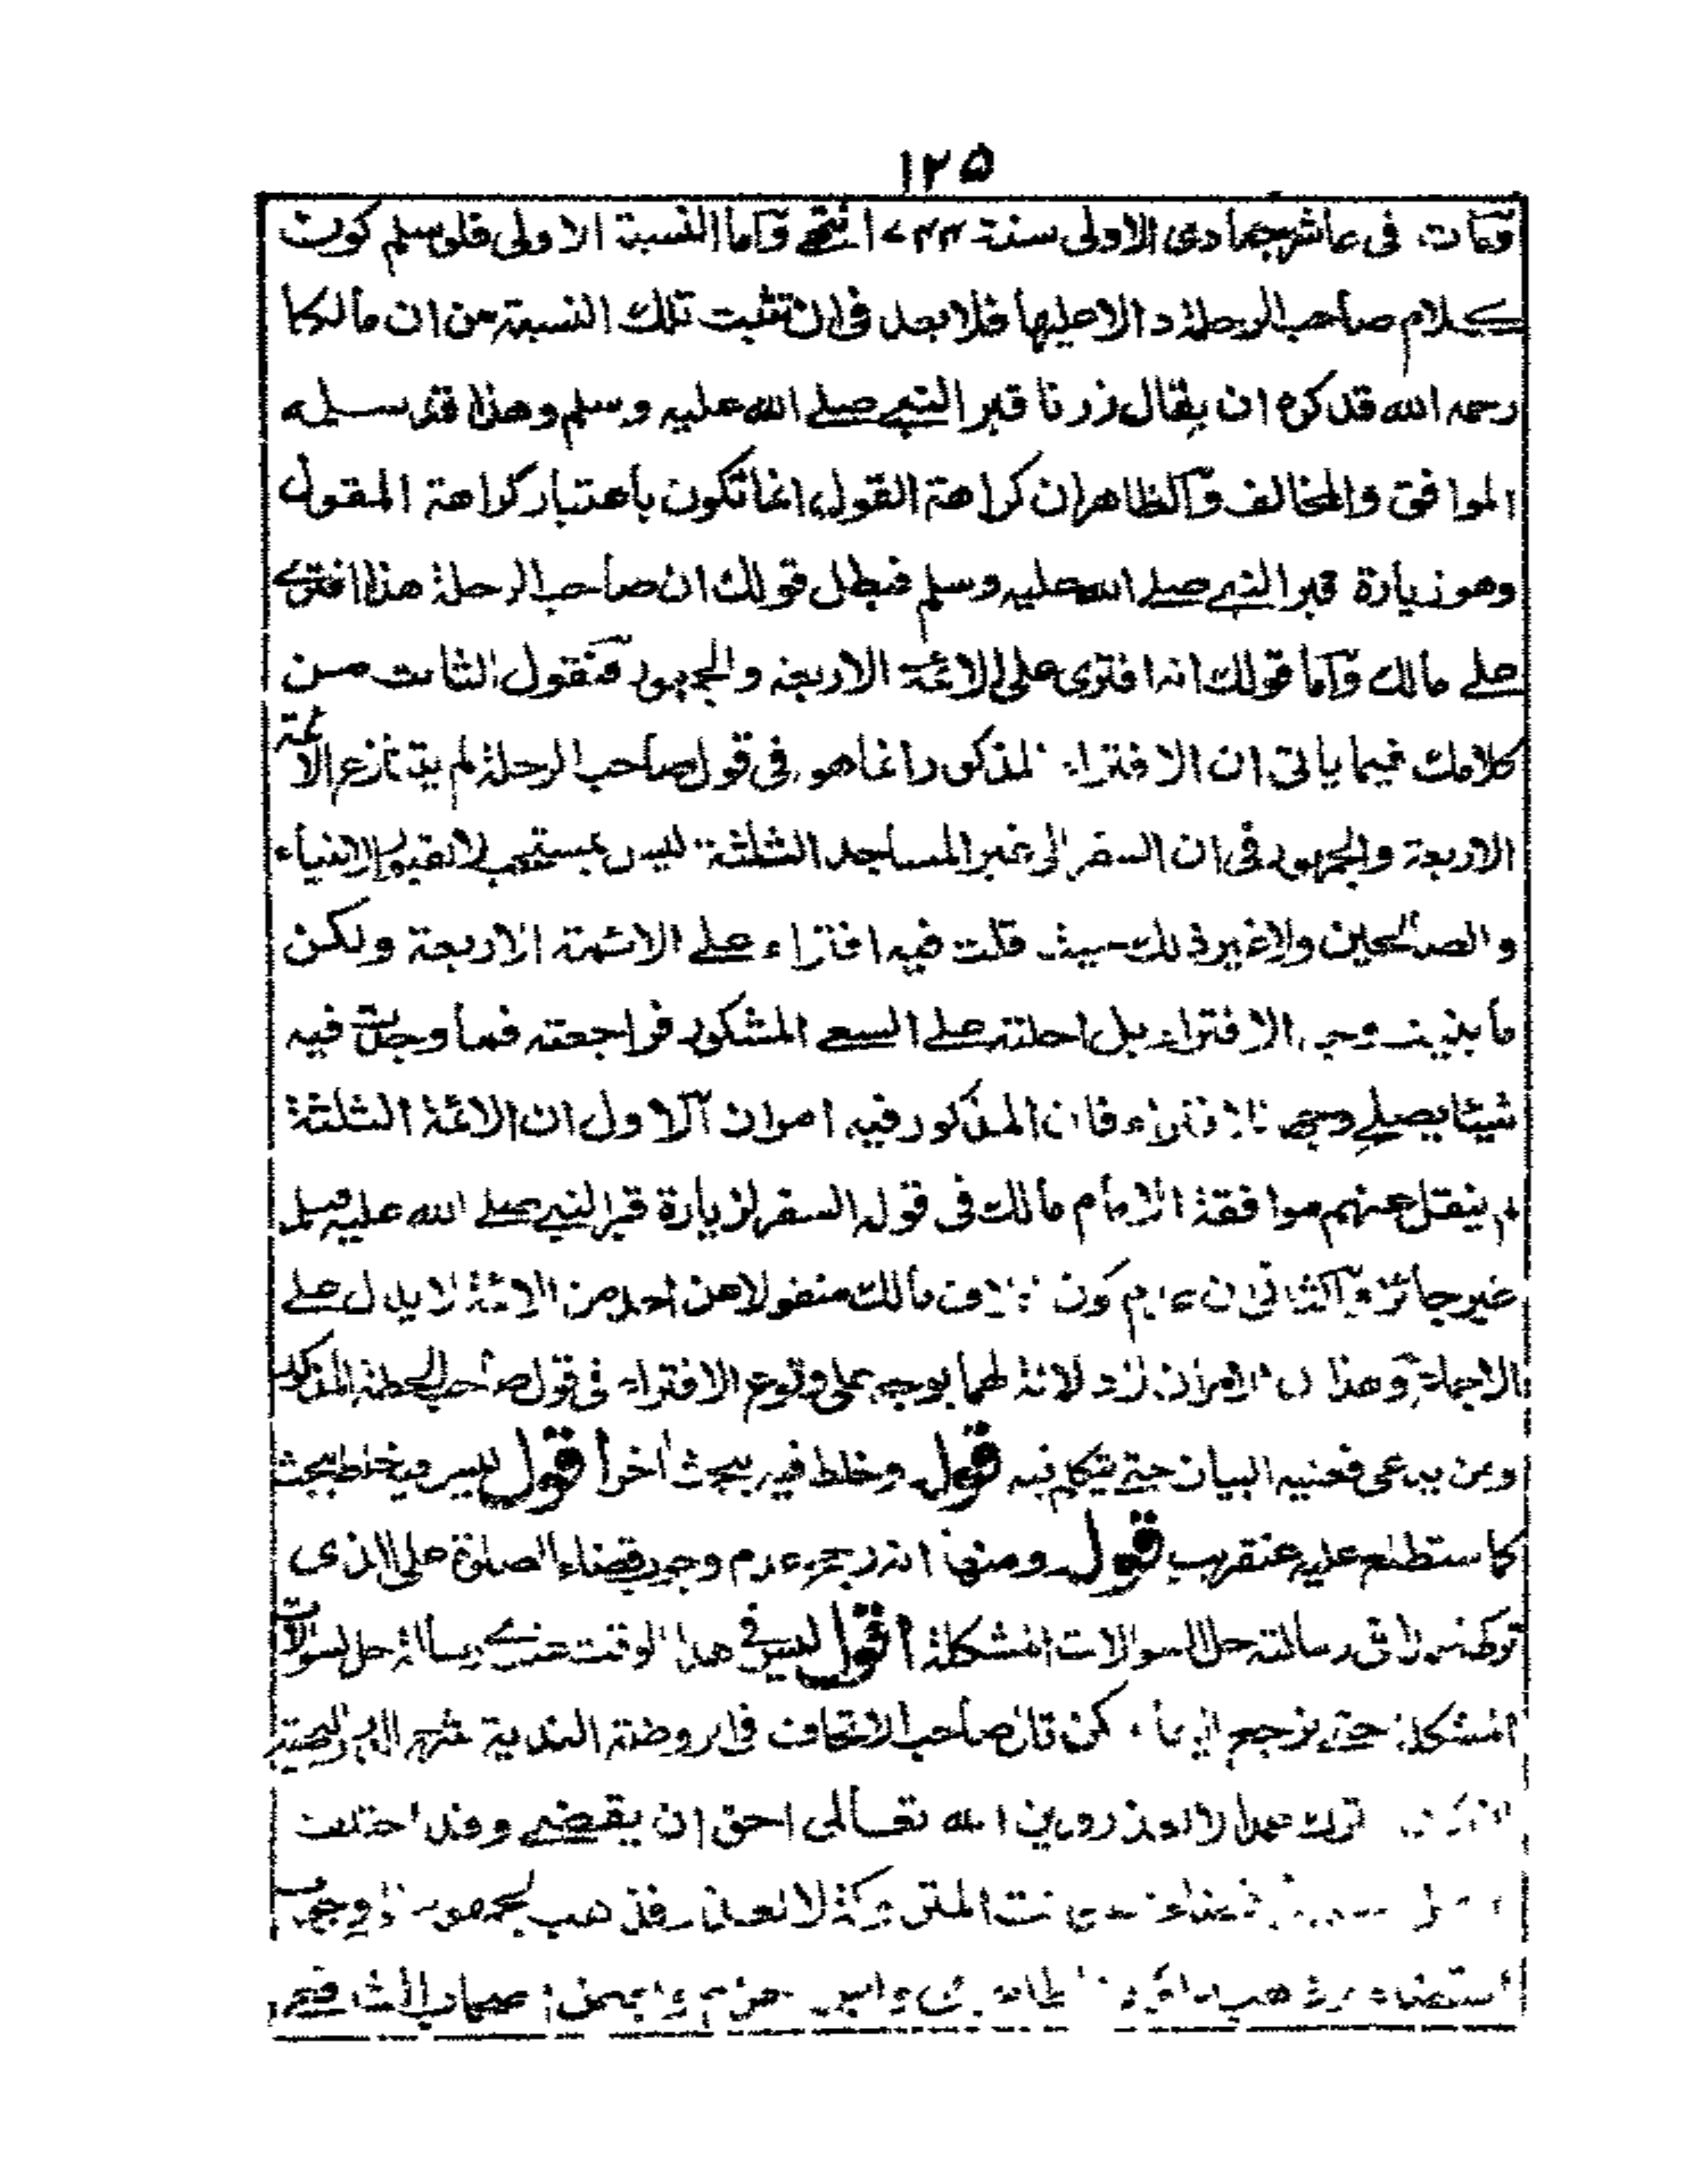 ١٢٥
ومات فى عاشر جمادى الاولى سنة ٧٤٤ انتهى واما النسبة الاولى فلو سلم كون
كلام صاحب الرحلة دالا عليها فلا بعد فى ان تثبت تلك النسبة من ان مالكا
رحمه الله قد كره ان يقال زرنا قبر النبي صلے الله عليه وسلم وهذا قد سلمه
الموافق والمخالف والظاهر ان كراهة القول انما تكون باعتبار كراهة المقول
وهو زيارة قبر النبي صلے الله عليه وسلم فبطل قولك ان صاحب الرحلة هذا افترى
علے مالك واما قولك انه افترى على الائمة الاربعة والجمهور فنقول الثابت من
كلامك فيما ياتى ان الافتراء المذكور انما هو فى قول صاحب الرحلة لم يتنازع الائمة
الاربعة والجمهور فى ان السفر الى غير المساجد الثلثة ليس بمستحب لا لقبور الانبياء
والصالحين ولا غير ذلك حيث قلت فيه افتراء علے الائمة الاربعة ولكن
ما بينت وجه الافتراء بل احلته علے السعے المشكور فراجعته فما وجدت فيه
شيئا يصلح وجها للافتراء فان المذكور فيه امران الاول ان الائمة الثلثة
لم ينقل عنهم موافقة الامام مالك فى قوله السفر لزيارة قبر النبي صلے الله عليه وسلم
غير جائز والثانى ان عدم كون خلاف مالك منقولا عن احد من الائمة لا يدل علے
الاجماع وهذان الامران لا دلالة لهما بوجه على وقوع الافتراء فى قول صاحب الرحلة المذكور
ومن يدعى فعليه البيان حتے يتكلم فيه قوله وخلط فيه بحث اخر اقول ليس فيه خلط بحث
كما ستطلع عليه عنقريب قوله ومنها انه رجح عدم وجوب قضاء الصلوة على الذى
تركها عمدا فى رسالته حل السوالات المشكلة اقول ليس فى هذا الوقت عندى رسالة حل السوالات
المشكلة حتے نرجع اليها لكن قال صاحب الاتحاف فى الروضة الندية شرح الدرر البهية
ترك عمدا لا لعذر فدين الله تعالى احق ان يقضے وقد اختلف
قضاء المتروكة لا لعذر فذهب الجمهور الى وجوب
القضاء وذهب داؤد الظاهرى وابن حزم وبعض اصحاب الشافعے